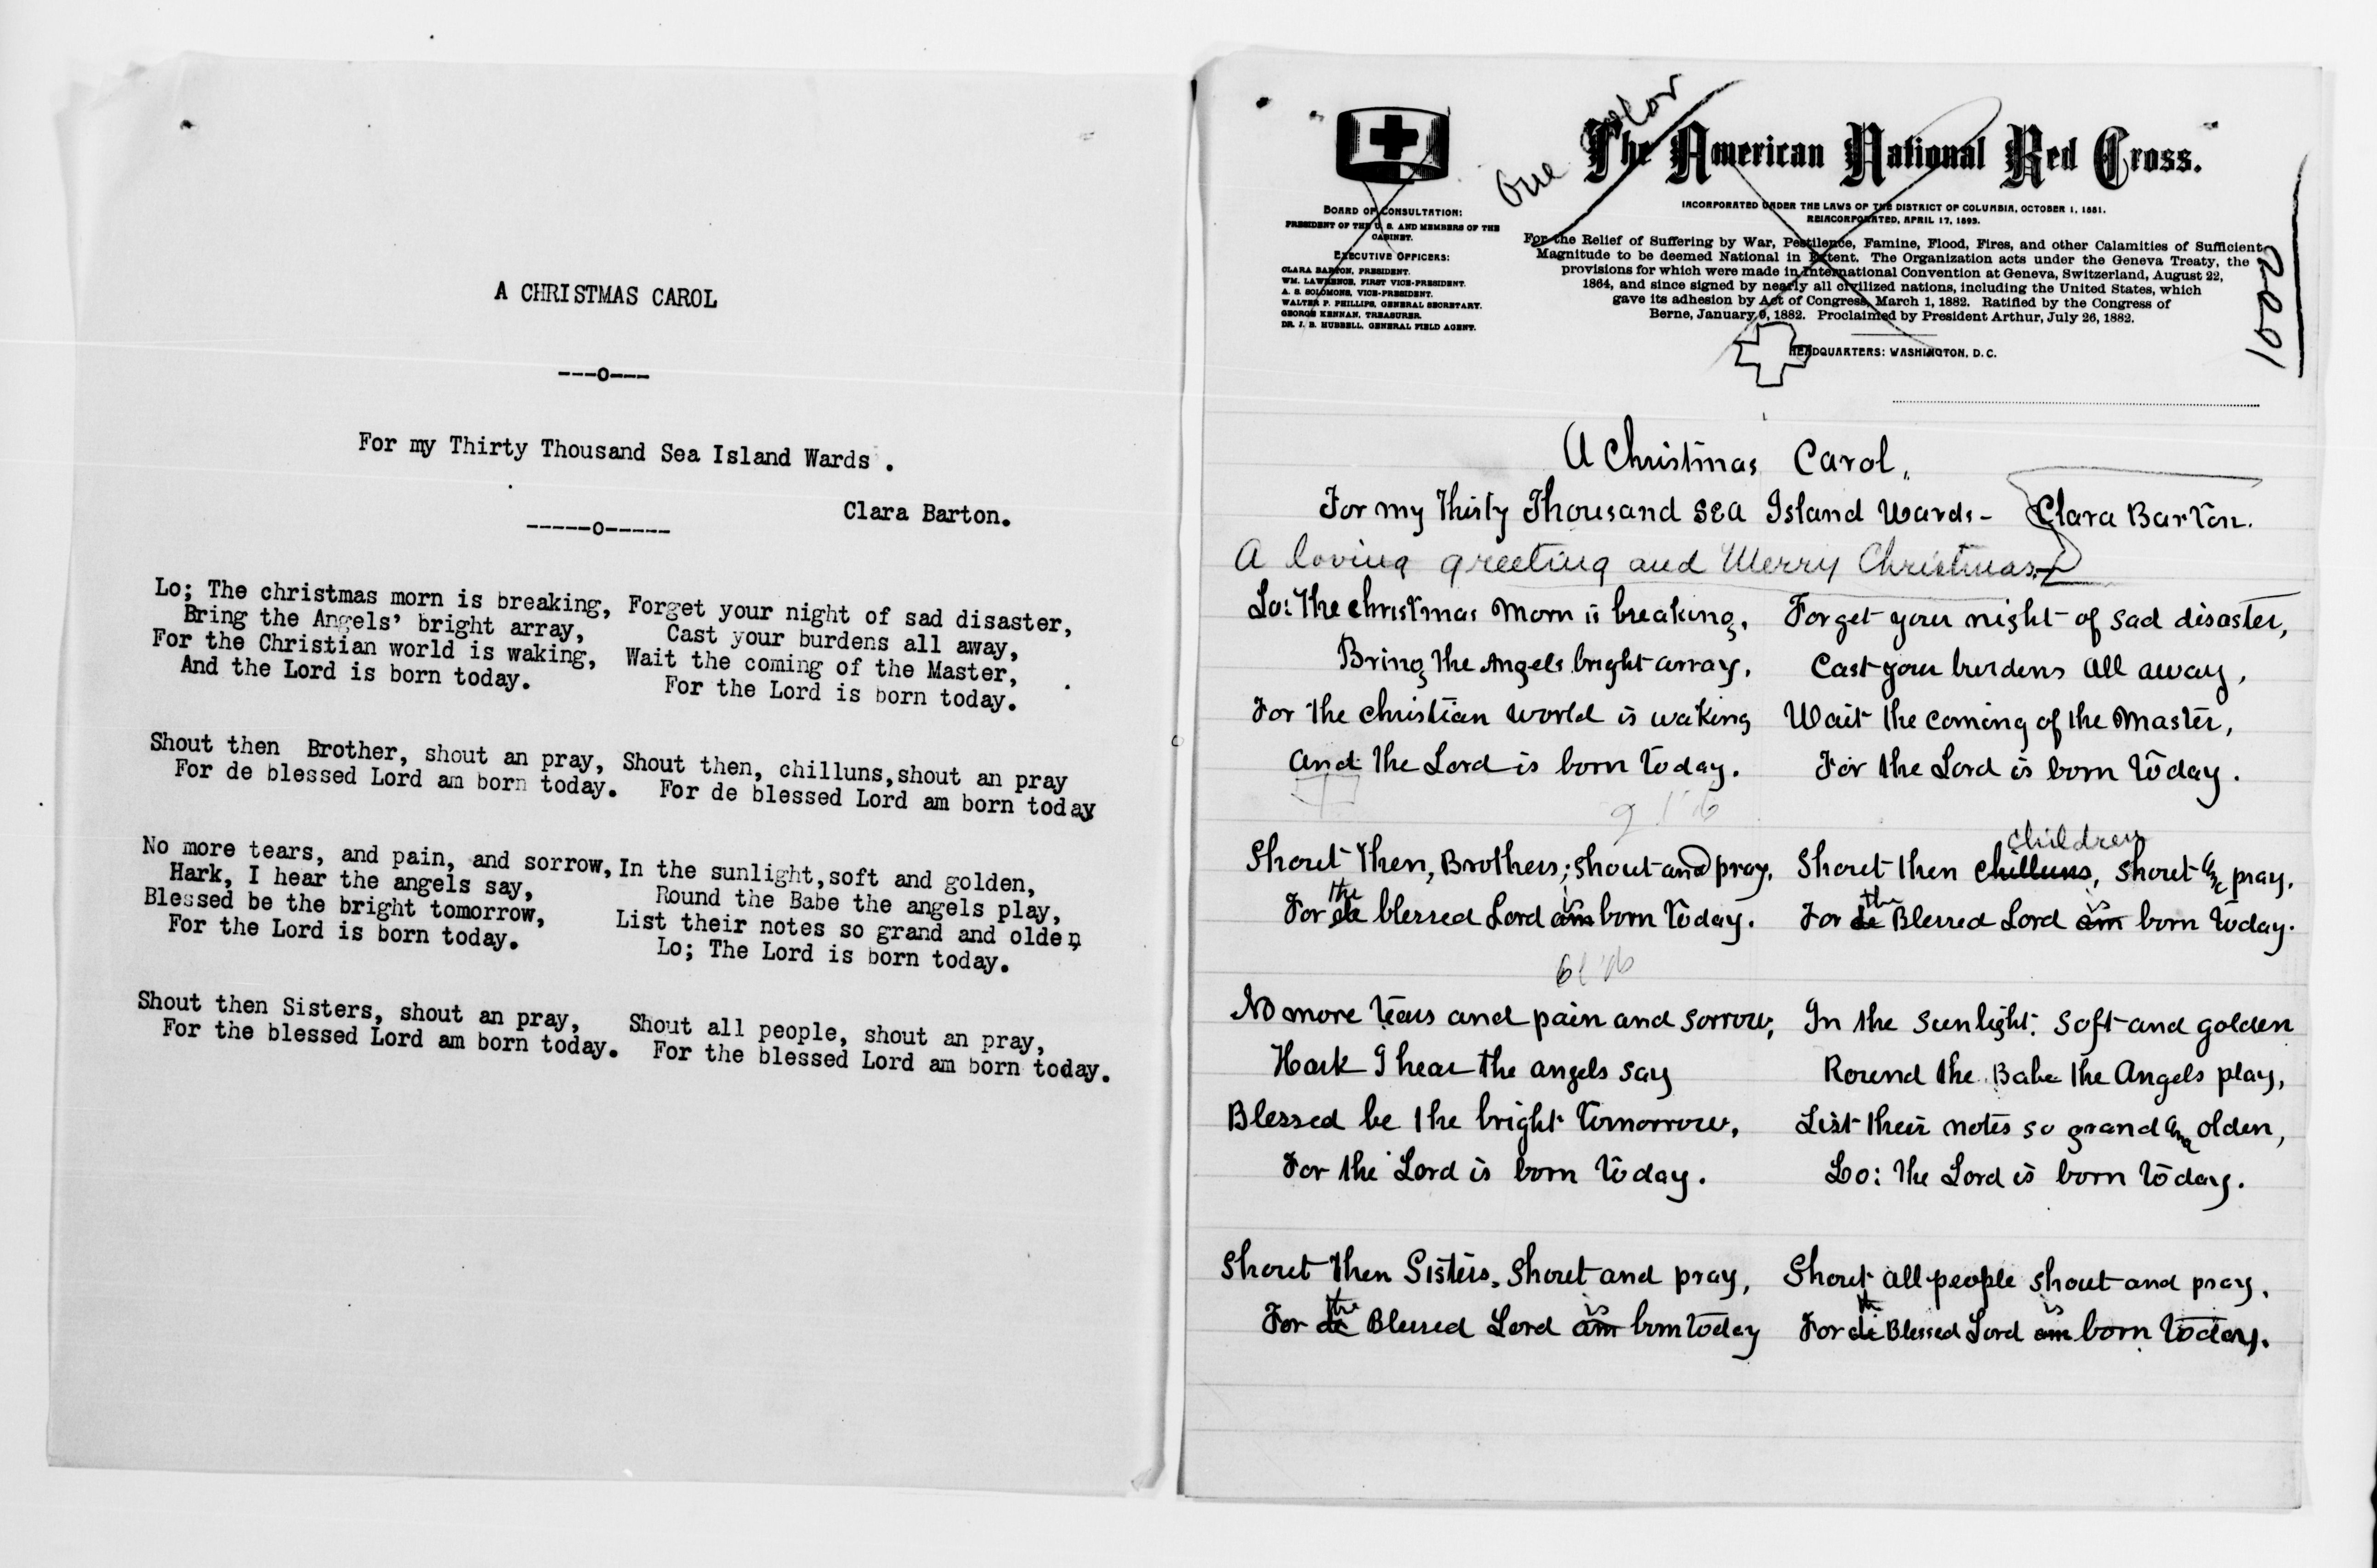 A CHRISTMAS CAROL
---o---
For my Thirty Thousand Sea Island Wards .
Clara Barton.
-----o-----
Lo; The christmas morn is breaking,
Bring the Angels' bright array,
For the Christian world is waking,
And the Lord is born today.
Forget your night of sad disaster,
Cast your burdens all away,
Wait the coming of the Master,
For the Lord is born today.
Shout then Brother, shout an pray,
For de blessed Lord am born today.
Shout then, chilluns,shout an pray
For de blessed Lord am born today
No more tears, and pain, and sorrow,
Hark, I hear the angels say,
Blessed be the bright tomorrow,
For the Lord is born today.
In the sunlight,soft and golden,
Round the Babe the angels play,
List their notes so grand and olden
Lo; The Lord is born today.
Shout then Sisters, shout an pray,
For the blessed Lord am born today.
Shout all people, shout an pray,
For the blessed Lord am born today.
One color
The American National Red Cross.
INCORPORATED UNDER THE LAWS OF THE DISTRICT OF COLUMBIA, OCTOBER 1, 1881.
REINCORPORATED, APRIL 17, 1893.
For the Relief of Suffering by War, Pestilence, Famine, Flood, Fires, and other Calamities of Sufficient
Magnitude to be deemed National in Extent. The Organization acts under the Geneva Treaty, the
provisions for which were made in International Convention at Geneva, Switzerland, August 22,
1864, and since signed by nearly all civilized nations, including the United States, which
gave its adhesion by Act of Congress, March 1, 1882. Ratified by the Congress of
Berne, January 9, 1882. Proclaimed by President Arthur, July 26, 1882.
HEADQUARTERS: WASHINGTON, D.C.
BOARD OF CONSULTATION:
PRESIDENT OF THE U. S. AND MEMBERS OF THE
CABINET.
EXECUTIVE OFFICERS:
CLARA BARTON, PRESIDENT.
WM. LAWRENCE, FIRST VICE-PRESIDENT.
A. S. SOLOMONS, VICE-PRESIDENT.
WALTER P. PHILLIPS, GENERAL SECRETARY.
GEORGE KENNAN, TREASURER.
DR. J. B. HUBBELL, GENERAL FIELD AGENT.
1000
A Christmas Carol,
For my Thirty Thousand Sea Island Wards- Clara Barton.
A loving greeting and Merry Christmas
Lo: The christmas Morn is breaking,
Bring the Angels bright array,
For the christian world is waking
And the Lord is born today.
Forget your night of sad disaster,
Cast your burdens all away,
Wait the coming of the Master,
For the Lord is born today.
Shout then, Brothers, shout and pray,
For de the blessed Lord am is born today.
Shout then chilluns children, shout and pray.
For de the Blessed Lord am is born today.
No more tears and pain and sorrow,
Hark I hear the angels say
Blessed be the bright tomorrow,
For the Lord is born today.
In the sunlight: soft and golden
Round the Babe the Angels play,
List their notes so grand and olden,
Lo: the Lord is born today.
Shout then Sisters, Shout and pray,
For de the Blessed Lord am is born today
Shout all people shout and pray,
For de the Blessed Lord am is born today.